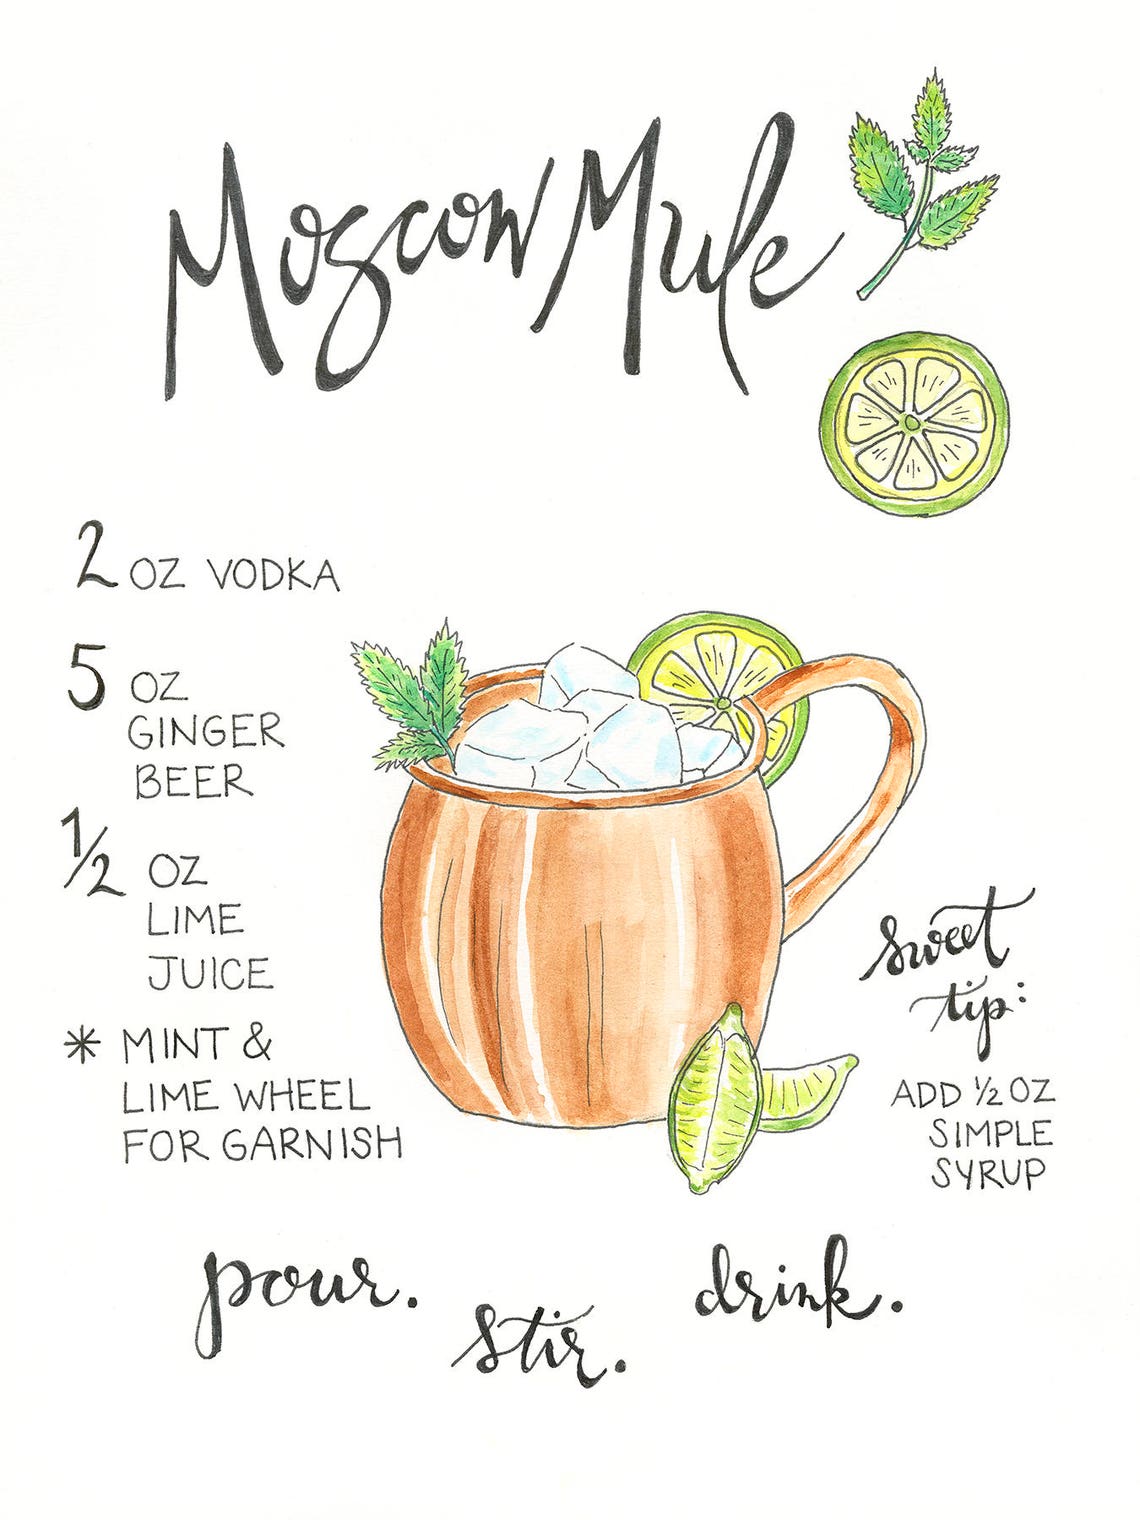 Moscow Mule
2 OZ VODKA
5 OZ
GINGER
BEER
1/2 OZ
LIME
JUICE
* MINT &
LIME WHEEL
FOR GARNISH
sweet
tip:
ADD 1/2 OZ
SIMPLE
SYRUP
pour.
stir.
drink.